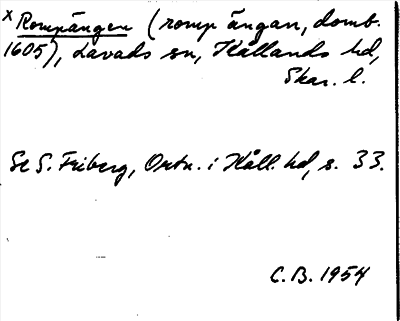 x Rompängen (romp ängan, domb.
1605), Lavads sn, Kållands hd,
Skar. l.
Se S. Friberg, Ortn. i Kåll. hd, s. 33.
C.B. 1954